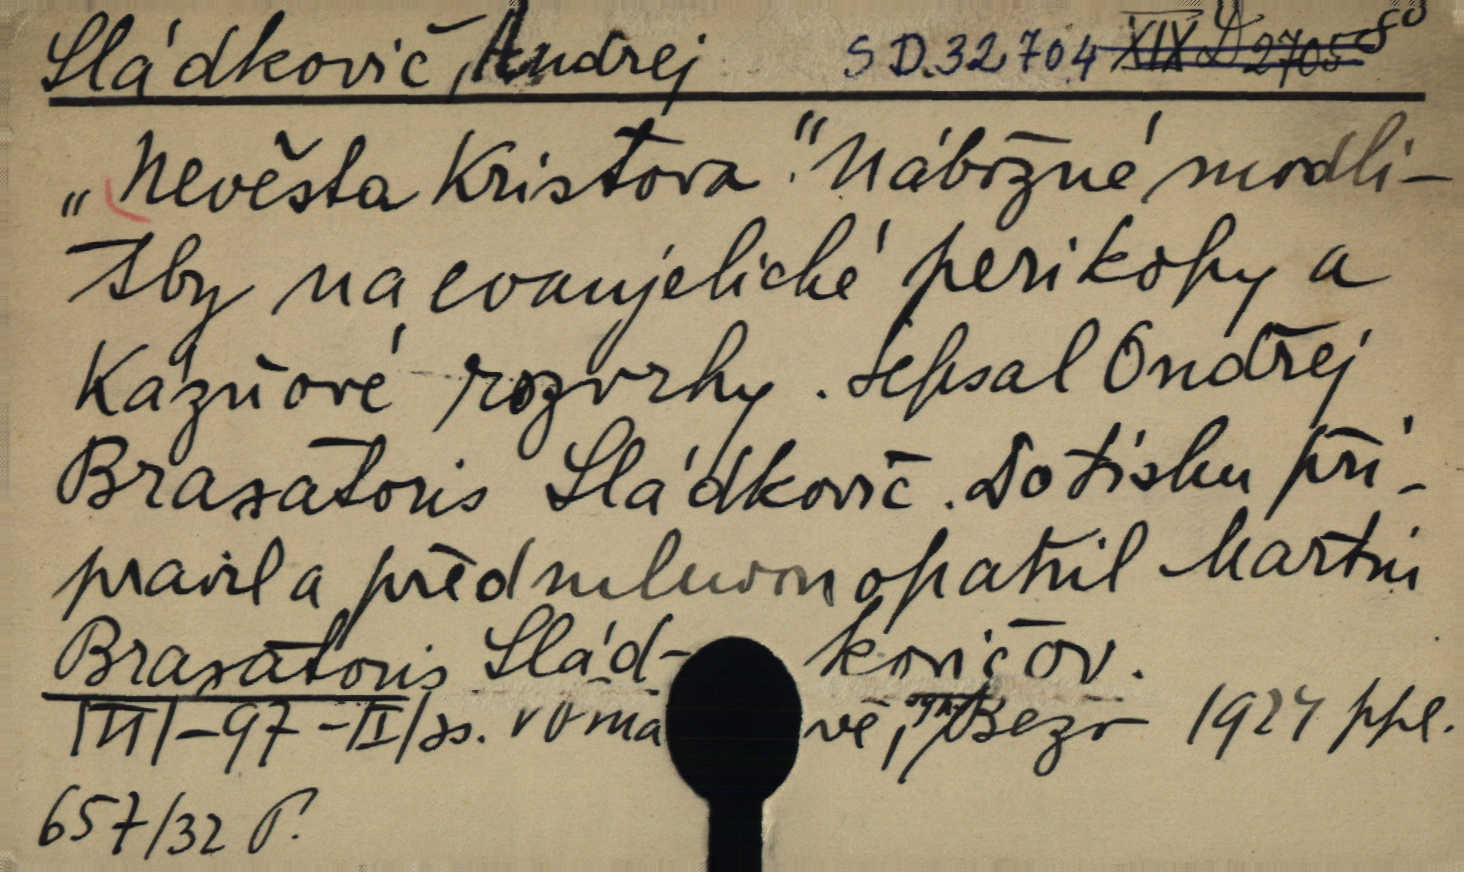 Sládkovič, Andrej SD.32704 XIX D 2705
„Nevěsta Kristova." Nábožné modli-
tby na evanjelické perikopy a
Kázňové rozvrhy. sepsal Ondřej
Braxatoris Sládkovič. Do tisku při-
pravil a předmluvou opatřil Martin
Braxatoris Slád- kovičov.
|III|-97-II/ss. V Omá vě, 1924 ppl.
657/32 P.